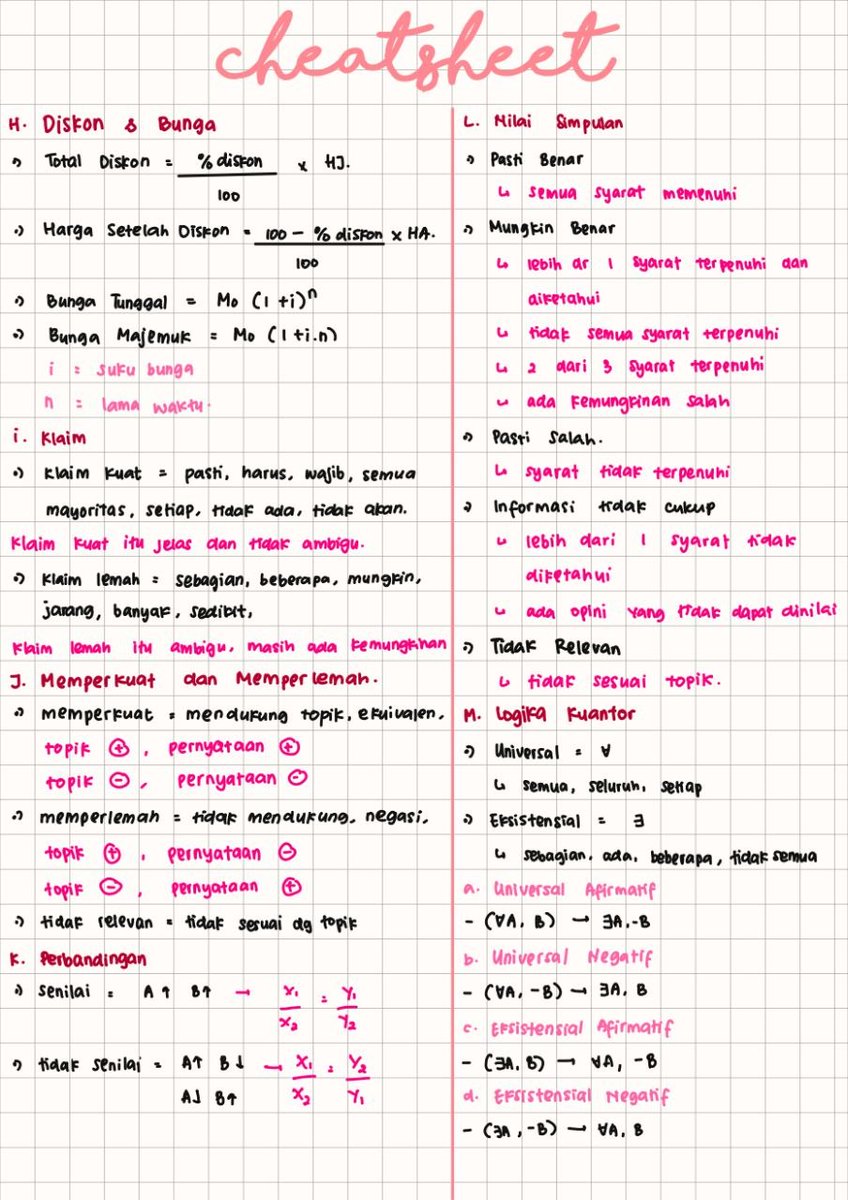 cheatsheet
H. Diskon & Bunga
Total Diskon = % diskon / 100 x HJ.
Harga Setelah Diskon = 100 - % diskon / 100 x HA.
Bunga Tunggal = Mo (1 + i)^n
Bunga Majemuk = Mo (1 + i.n)
i = suku bunga
n = lama waktu.
i. Klaim
Klaim kuat = pasti, harus, wajib, semua
mayoritas, setiap, tidak ada, tidak akan.
Klaim kuat itu jelas dan tidak ambigu.
Klaim lemah = sebagian, beberapa, mungkin,
jarang, banyak, sedikit,
Klaim lemah itu ambigu, masih ada kemungkinan
J. Memperkuat dan Memperlemah.
memperkuat = mendukung topik, ekuivalen,
topik +, pernyataan +
topik -, pernyataan -
memperlemah = tidak mendukung, negasi,
topik +, pernyataan -
topik -, pernyataan +
tidak relevan = tidak sesuai dg topik
K. Perbandingan
senilai = A↑ B↑ → X₁/X₂ = Y₁/Y₂
tidak senilai = A↑ B↓ → X₁/X₂ = Y₂/Y₁
A↓ B↑
L. Nilai Simpulan
Pasti Benar
↳ semua syarat memenuhi
Mungkin Benar
↳ lebih dr 1 syarat terpenuhi dan
diketahui
↳ tidak semua syarat terpenuhi
↳ 2 dari 3 syarat terpenuhi
↳ ada kemungkinan salah
Pasti Salah.
↳ syarat tidak terpenuhi
Informasi tidak cukup
↳ lebih dari 1 syarat tidak
diketahui
↳ ada opini yang tidak dapat dinilai
Tidak Relevan
↳ tidak sesuai topik.
M. Logika Kuantor
Universal = ∀
↳ semua, seluruh, setiap
Eksistensial = ∃
↳ sebagian, ada, beberapa, tidak semua
a. Universal Afirmatif
- (∀A, B) → ∃A, -B
b. Universal Negatif
- (∀A, -B) → ∃A, B
c. Eksistensial Afirmatif
- (∃A, B) → ∀A, -B
d. Eksistensial Negatif
- (∃A, -B) → ∀A, B